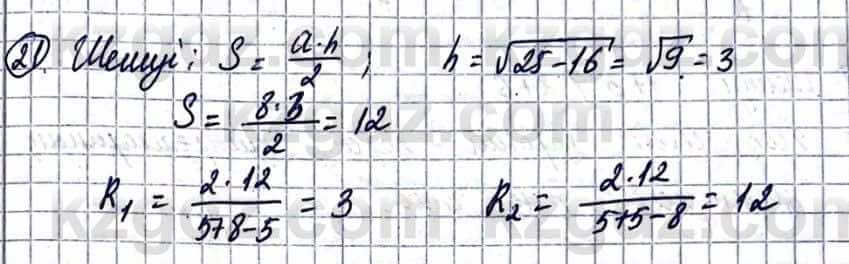 21. Шешуі: S = a·h/2; h = √25-16 = √9 = 3
S = 8·3/2 = 12
R₁ = 2·12/5+8-5 = 3 R₂ = 2·12/5+5-8 = 12